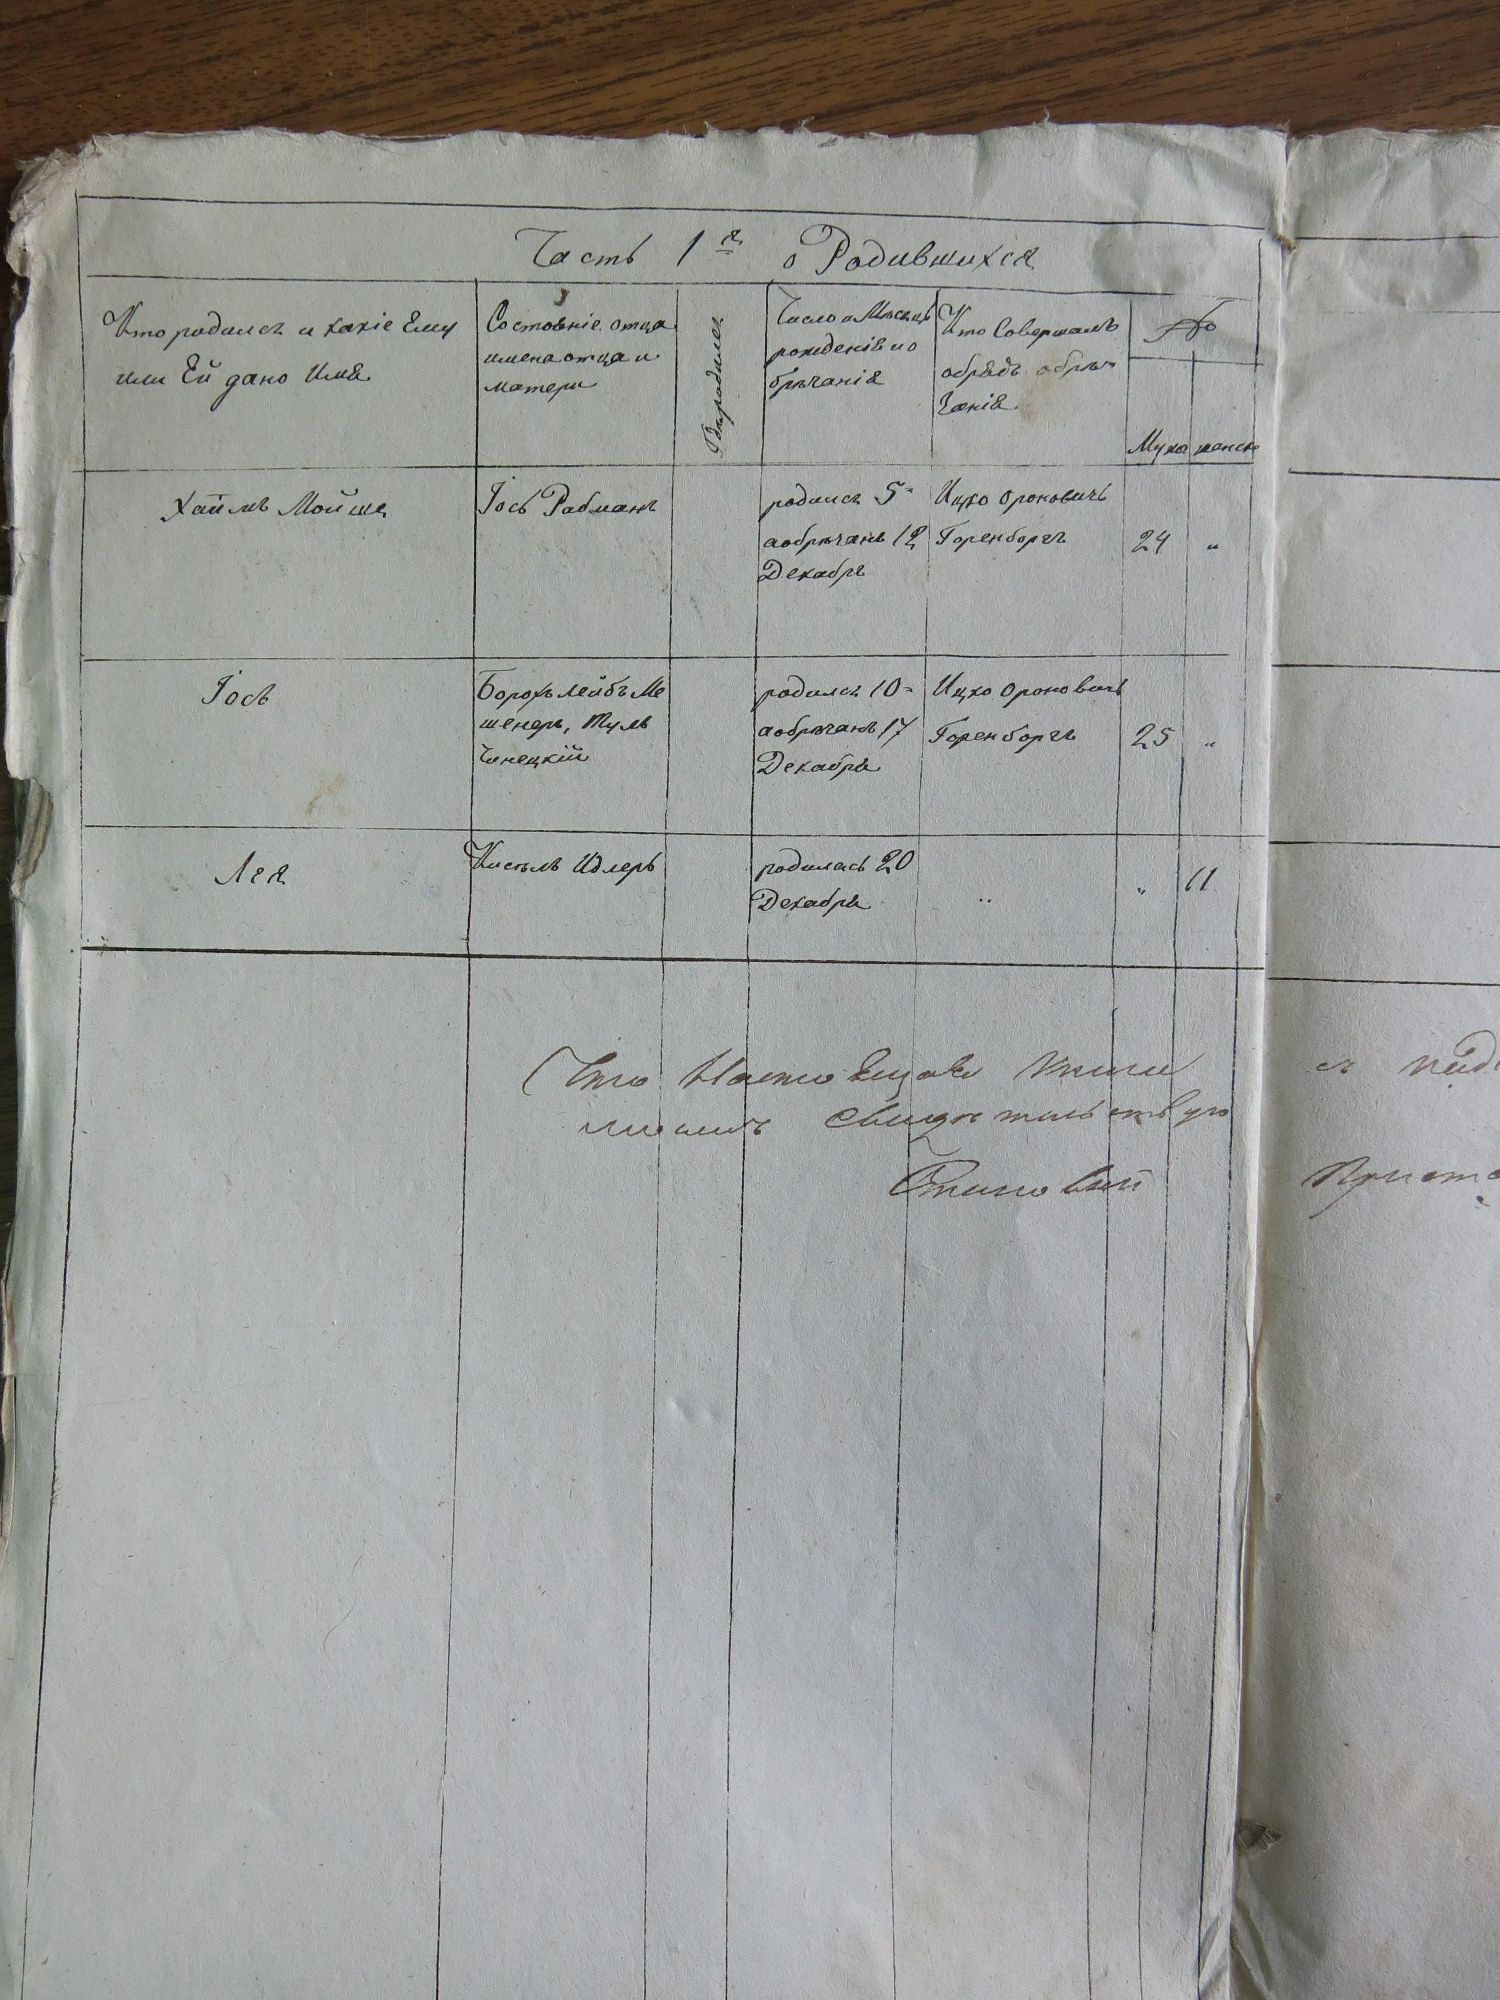 Часть 1я о Родившихся
Кто родился и какіе Ему
или Ей дано Имя
Состояніе отца
имена отца и
матери
Где родился
Число и Месяцъ
рожденія и о
брѣчанія
Кто Совершалъ
обрядъ обрѣ
чанія
№
Мужс женск
Хаймъ Мойше
Іось Рабманъ
родился 5
а обрѣчанъ 12
Декабр
Ицко Ороновичъ
Горенборгъ
24 „
Іось
Борохъ Лейбъ Ме
шенеръ, Туль
чинецкій
родился 10
а обрѣчанъ 17
Декабря
Ицко Ороновичъ
Горенборгъ
25 „
Лея
Кисель Идлеръ
родилась 20
Декабря
„
„ 11
Что Настоящая Книги
свидѣтельствую
Становый
Приста